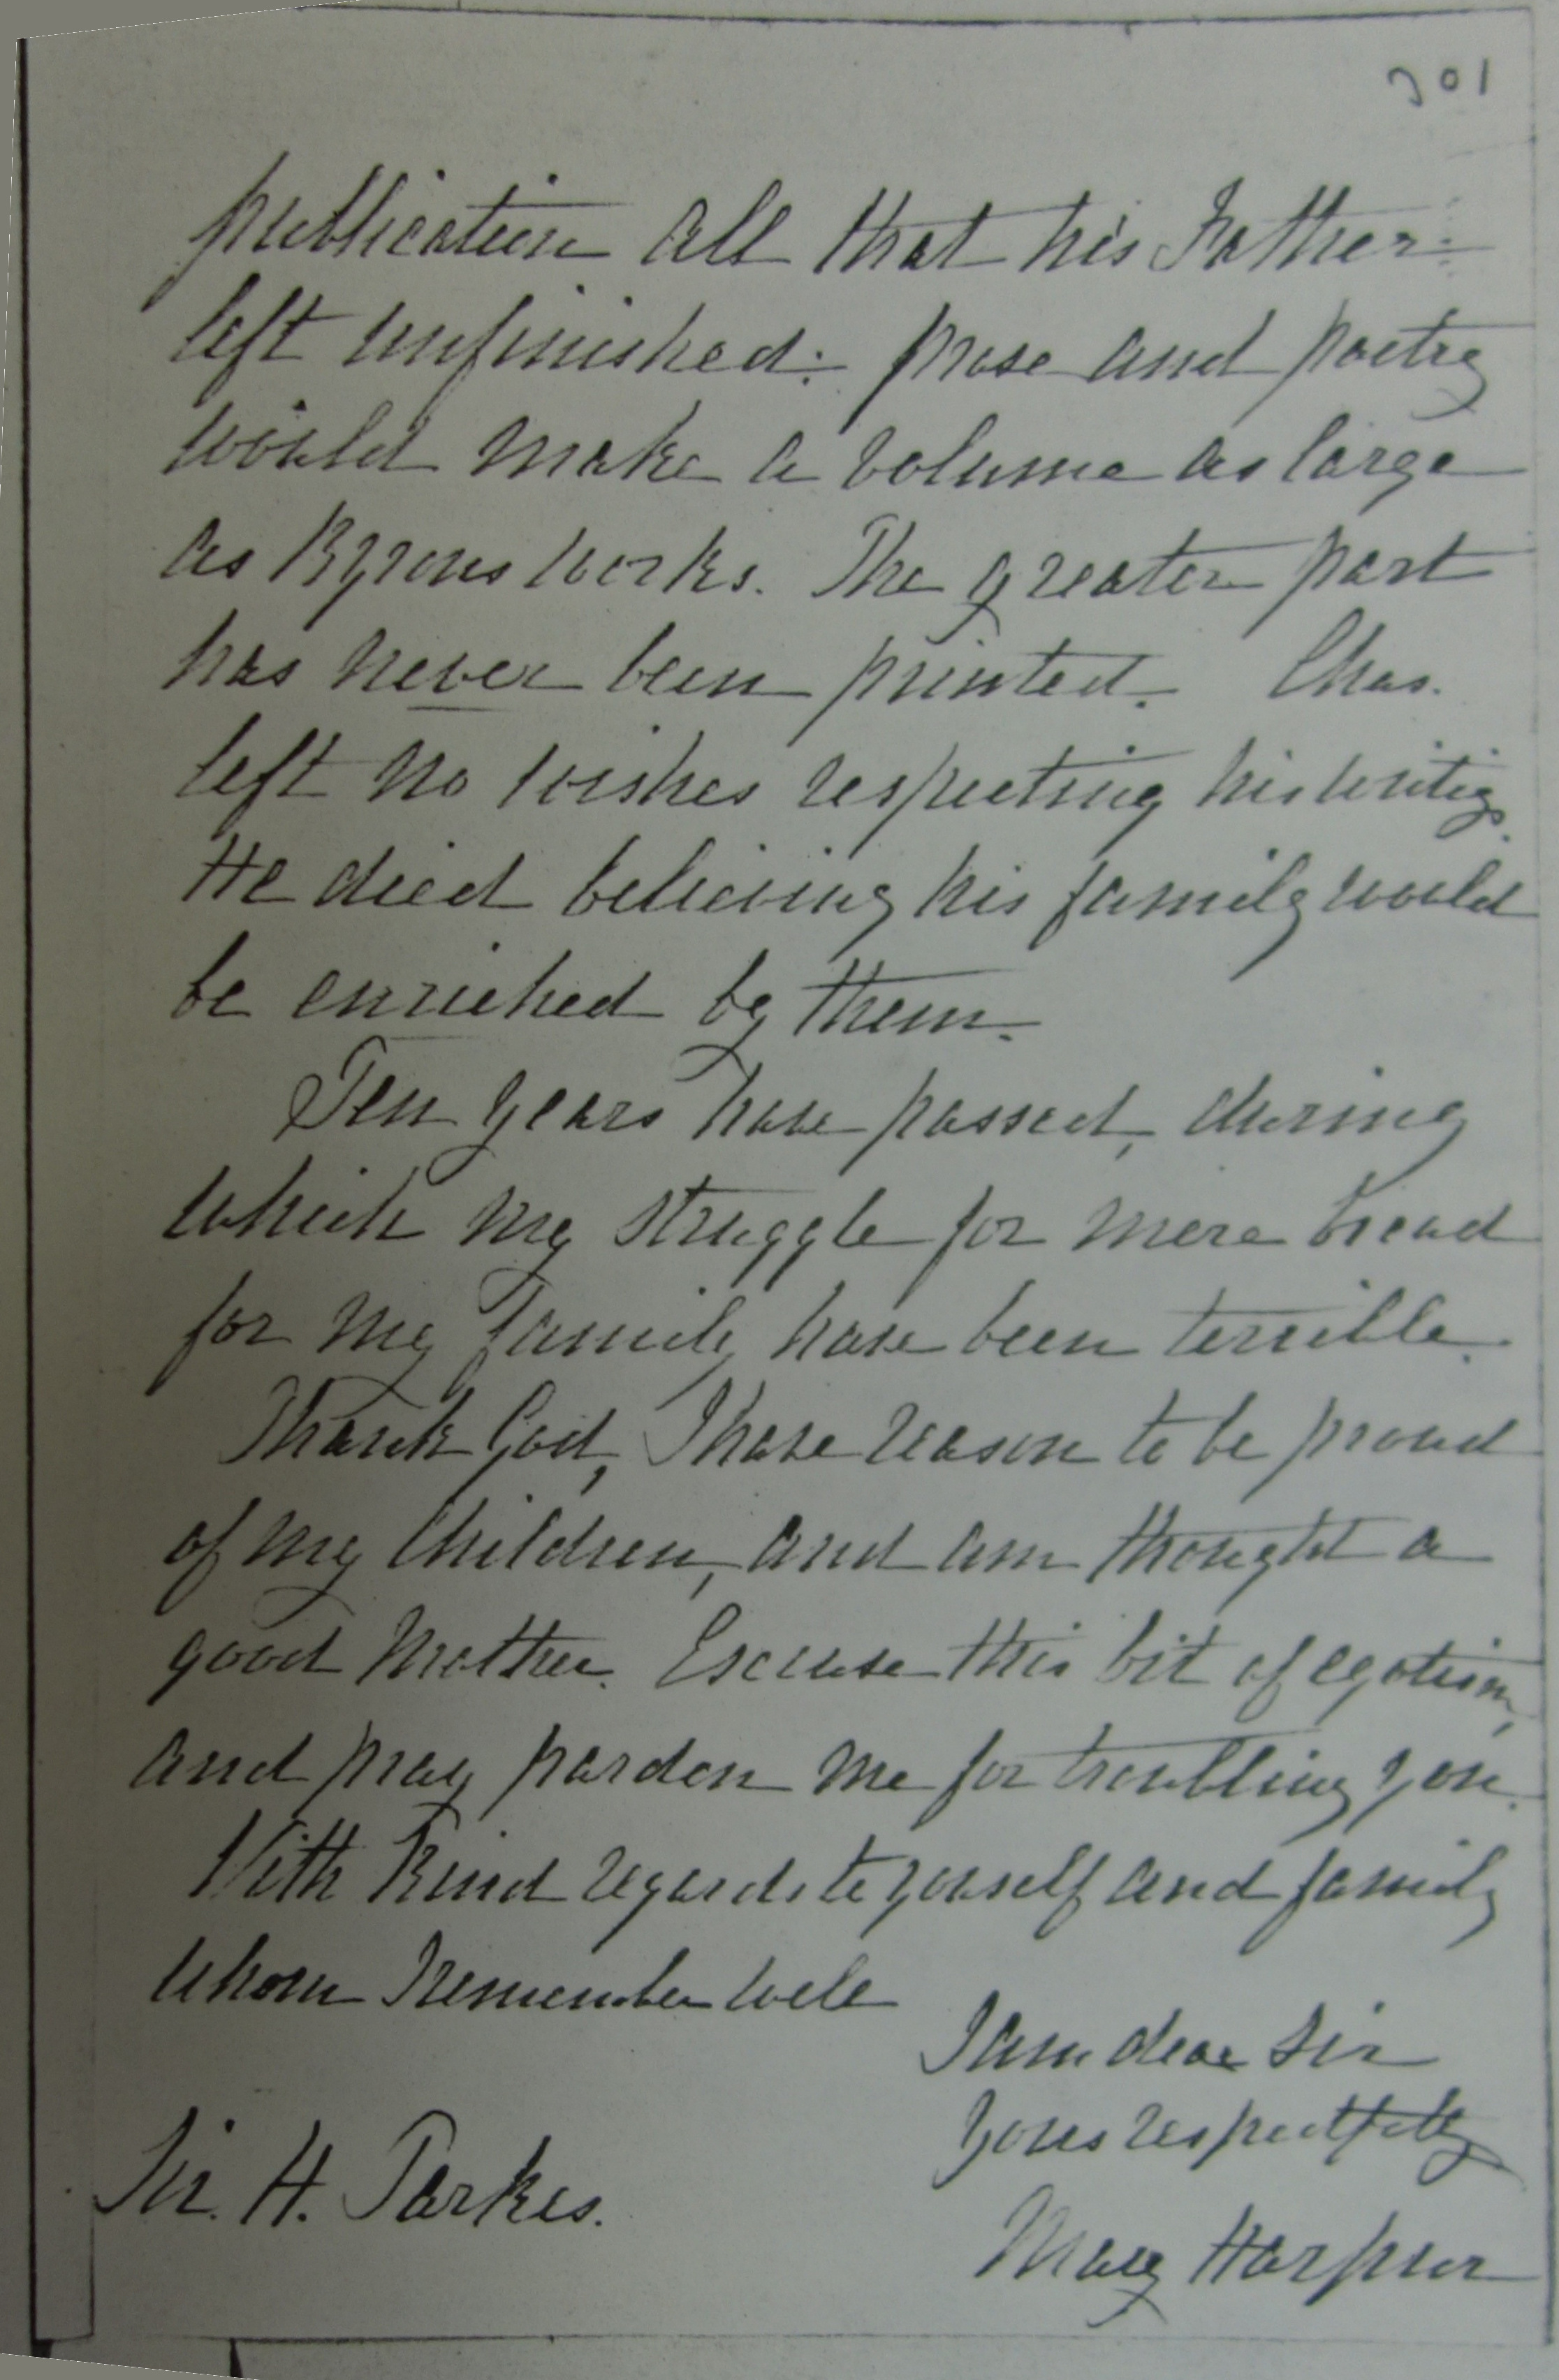 301
publication all that his Father
left unfinished: prose and poetry
would make a volume as large
as Byrons works. The greater part
has never been printed. Chas.
left no wishes respecting his writigs.
He died believing his family would
be enriched by them.
Ten years have passed, during
which my struggle for mere bread
for my family have been terrible.
Thank God, I have reason to be proud
of my children, and am thought a
good Mother. Excuse this bit of egotism,
and pray pardon me for troubling you.
With kind regards to yourself and family
whom I remember well
I am dear Sir
Yours respectfully
Mary Harpur
Sir. H. Parkes.